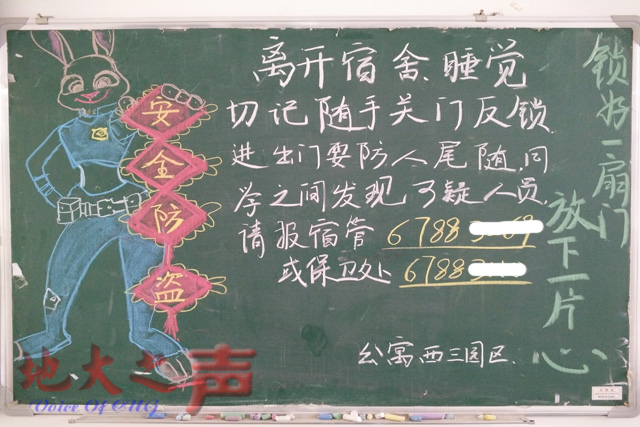 离开宿舍、睡觉
切记随手关门反锁
进出门要防人尾随,同
学之间发现可疑人员,
请报宿管 6788
或保卫处 6788
公寓西三园区.
安
全
防
盗
锁好一扇门
放下一片心
地大之声
Voice Of CUG